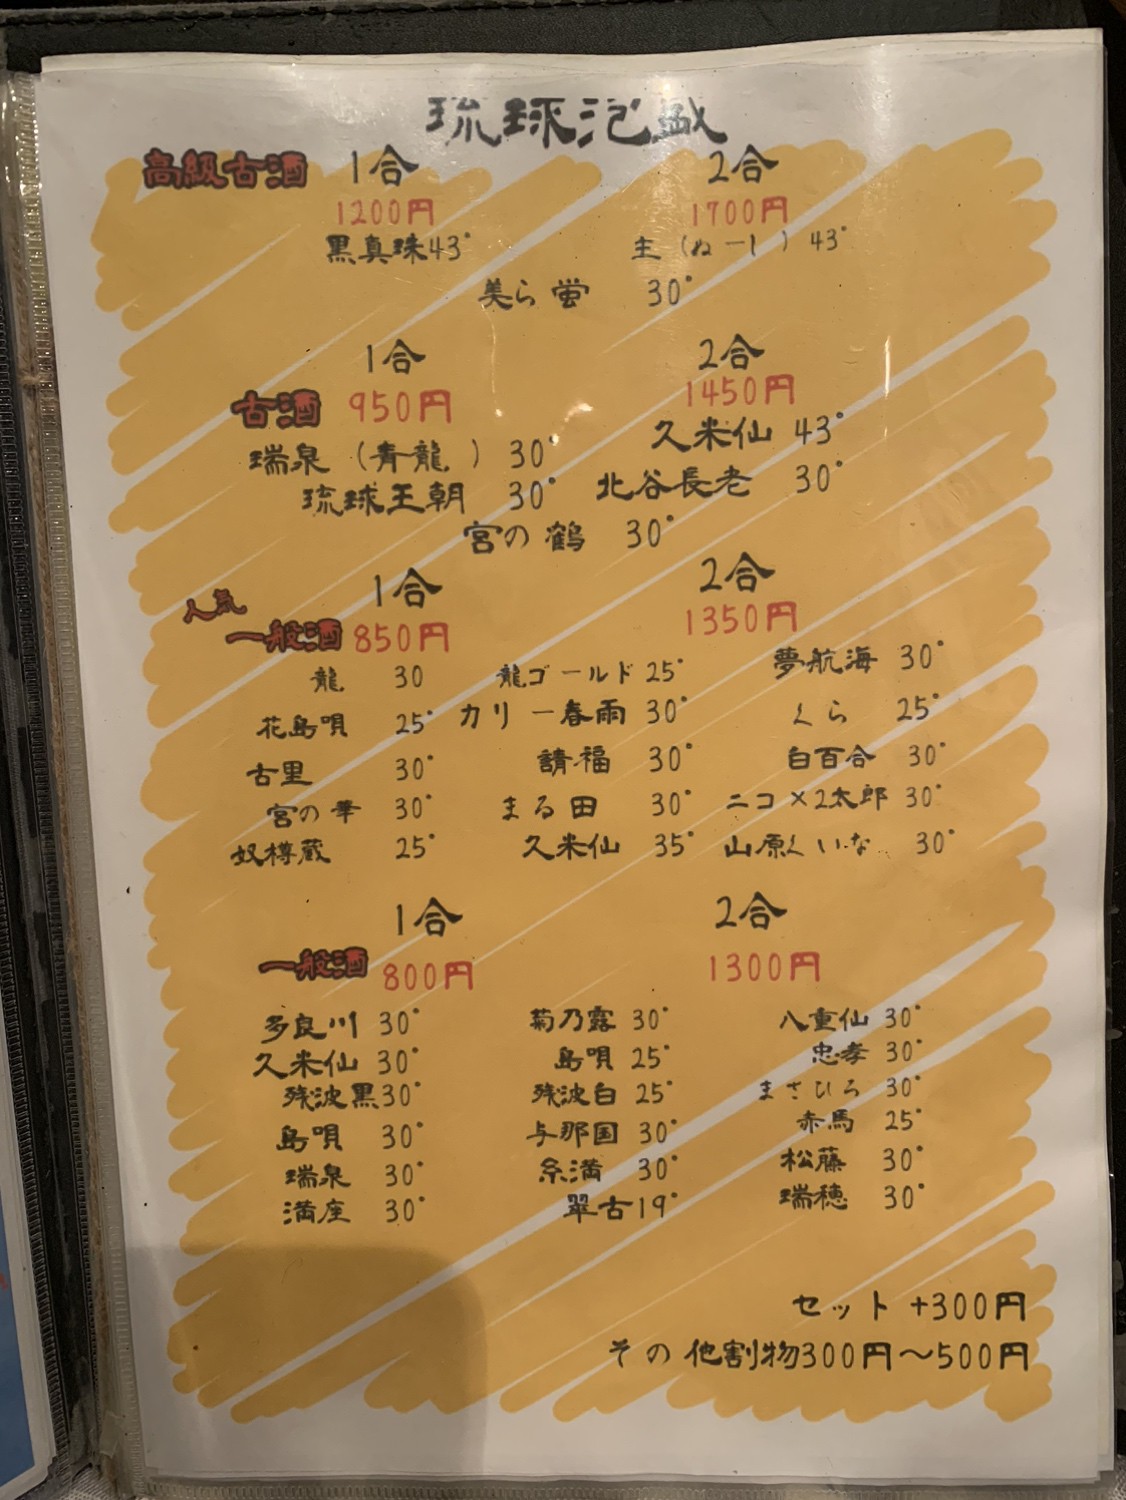 琉球泡盛
高級古酒 1合 2合
1200円 1700円
黒真珠43° 主(ぬーし)43°
美ら蛍 30°
1合 2合
古酒 950円 1450円
瑞泉(青龍)30° 久米仙 43°
琉球王朝 30° 北谷長老 30°
宮の鶴 30°
1合 2合
人気
一般酒 850円 1350円
龍 30 龍ゴールド 25° 夢航海 30°
花島唄 25° カリー春雨 30° くら 25°
古里 30° 請福 30° 白百合 30°
宮の華 30° まる田 30° ニコ×2太郎 30°
奴樽蔵 25° 久米仙 35° 山原くいな 30°
1合 2合
一般酒 800円 1300円
多良川 30° 菊乃露 30° 八重仙 30°
久米仙 30° 島唄 25° 忠孝 30°
残波黒30° 残波白 25° まさひろ 30°
島唄 30° 与那国 30° 赤馬 25°
瑞泉 30° 糸満 30° 松藤 30°
満座 30° 翠古19° 瑞穂 30°
セット +300円
その他割物300円～500円